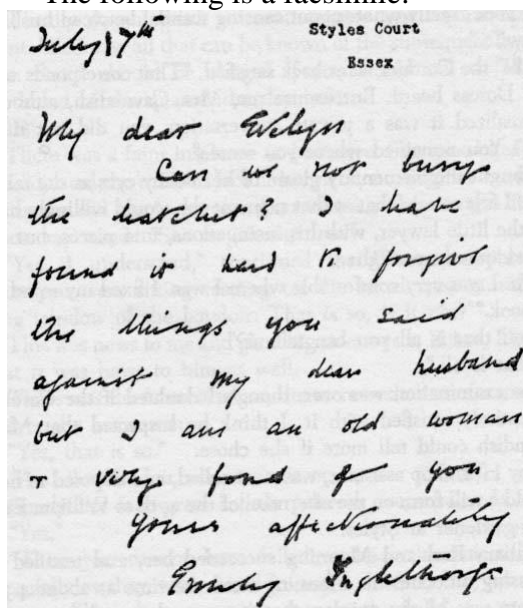 The following is a facsimile:
Styles Court
Essex
July 17th
My dear Evelyn
Can we not bury
the hatchet? I have
found it hard to forgive
the things you said
against my dear husband
but I am an old woman
& very fond of you
Yours affectionately
Emily Inglethorp